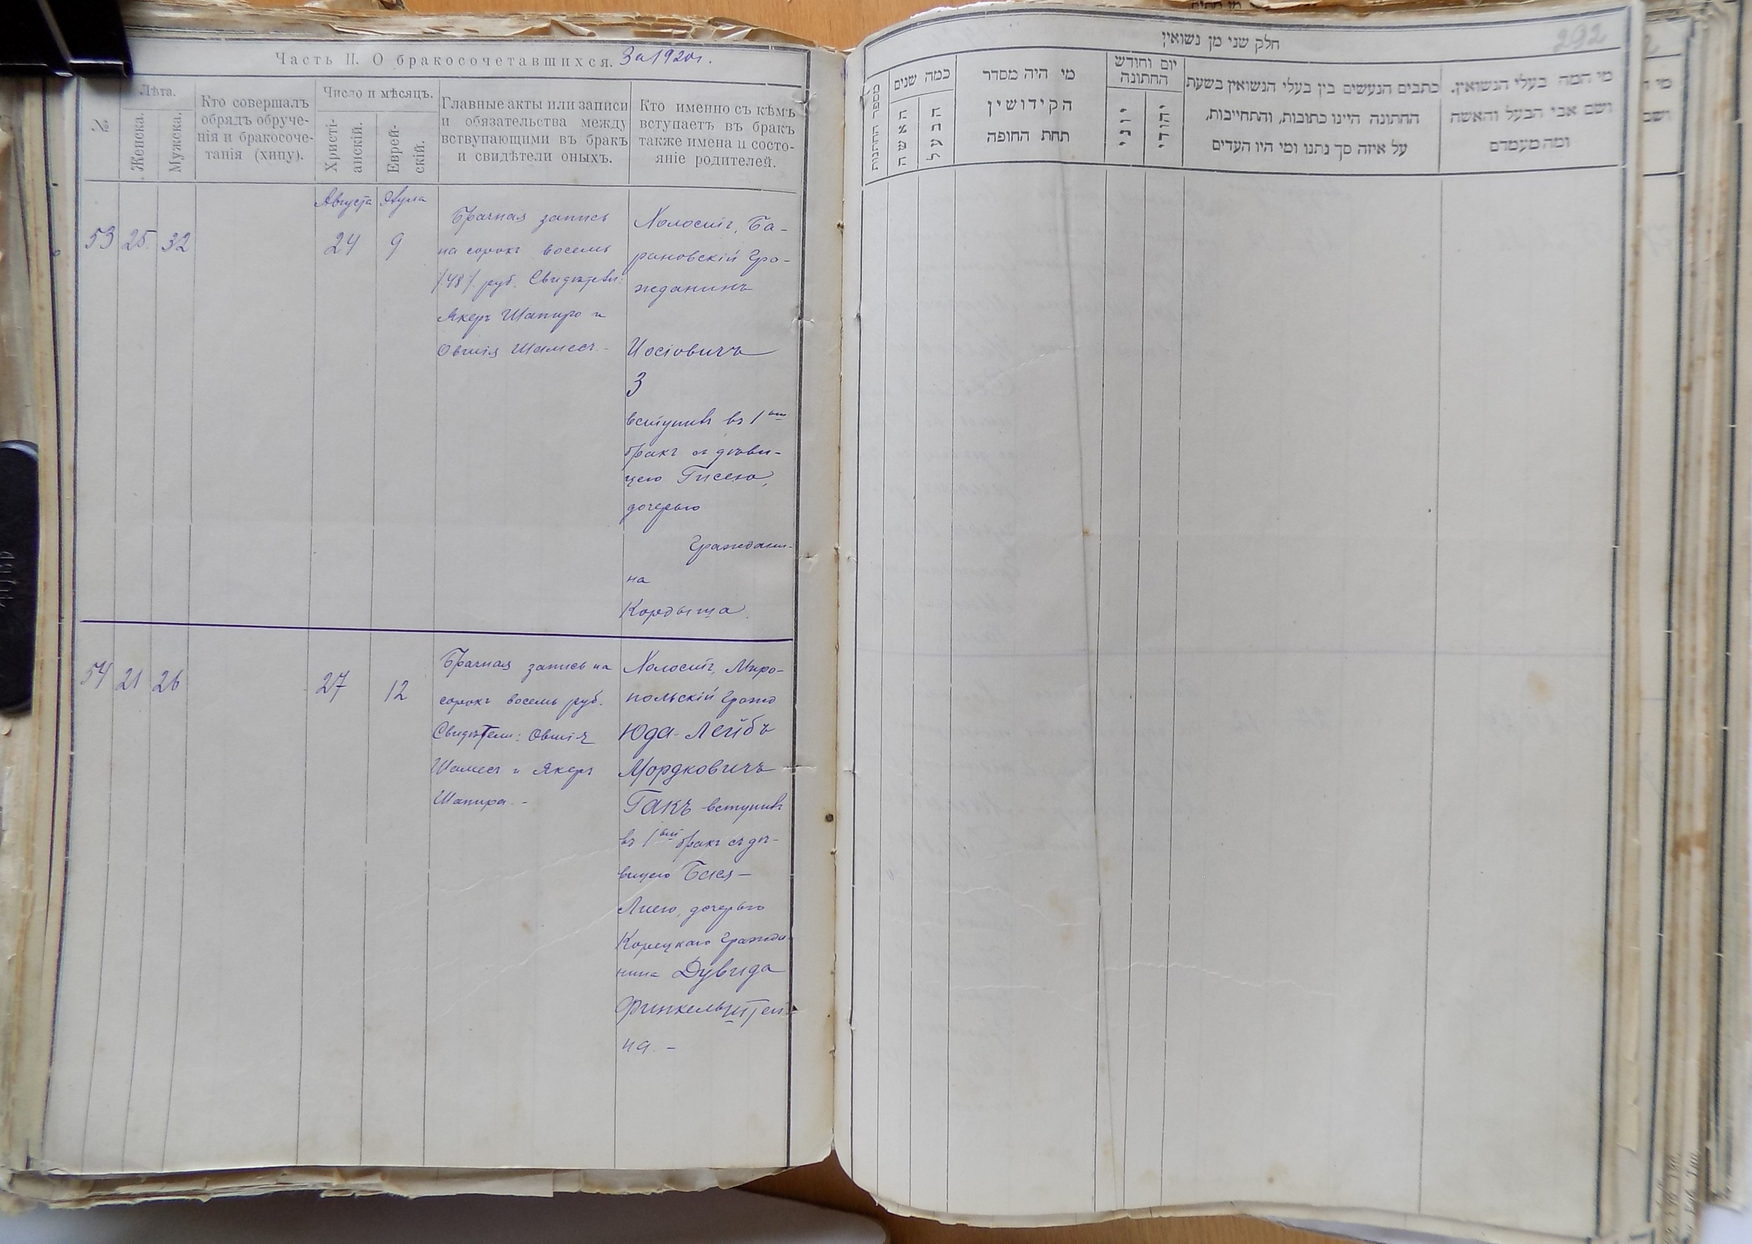 Часть II. О бракосочетавшихся. За 1920 г.
№
Лѣта.
Женска.
Мужска.
Кто совершалъ
обрядъ обруче-
нія и бракосоче-
танія (хипу).
Число и мѣсяцъ.
Христі-
анскій.
Еврей-
скій.
Главные акты или записи
и обязательства между
вступающими въ бракъ
и свидѣтели оныхъ.
Кто именно съ кѣмъ
вступаетъ въ бракъ
также имена и состо-
яніе родителей.
Августа
53 25. 32
24 9
Брачная запись
на сорокъ восемь
/48/ руб. Свидѣтели:
Якеръ Шапиро и
Овшія Шамесъ. -
Холостъ, Ба-
рановскій Гра-
жданинъ
Иосіовичъ
З
вступивъ въ 1ый
бракъ съ дѣви-
цею Гисею,
дочерью
Граждани-
на
Кордыша.
54 21 26
27 12
Брачная запись на
сорокъ восемь руб.
Свидѣтели: Овшія
Шамесъ и Якеръ
Шапиро. -
Холостъ, Миро-
польскій Гражд
Юда-Лейбъ
Мордковичъ
Гакъ вступивъ
въ 1ый бракъ съ дѣ-
вицею Бася-
Лиею, дочерью
Корецкаго Гражда-
нина Дувида
Финкельштей-
на. -
חלק שני מן נשואין
292
מספר החתונות
כמה שנים
האשה
הבעל
מי היה מסדר
הקידושין
תחת החופה
יום וחודש
החתונה
יוני
יהודי
כתבים הנעשים בין בעלי הנשואין בשעת
החתונה היינו כתובות, והתחייבות,
על איזה סך נתנו ומי היו העדים
מי המה בעלי הנשואין.
ושם אבי הבעל והאשה
ומה מעמדם